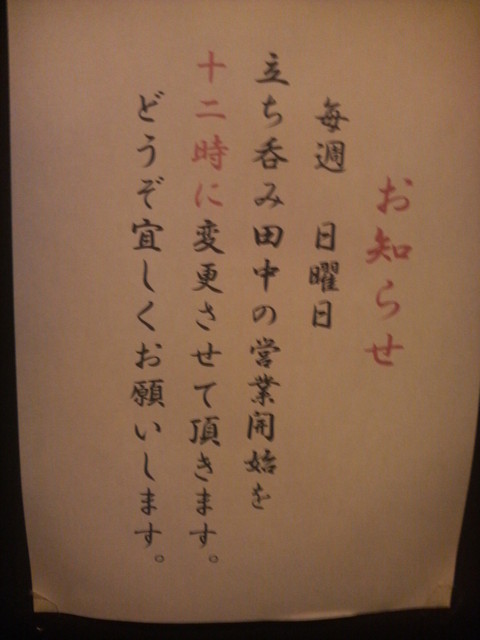 お知らせ
毎週　日曜日
立ち呑み田中の営業開始を
十二時に変更させて頂きます。
どうぞ宜しくお願いします。